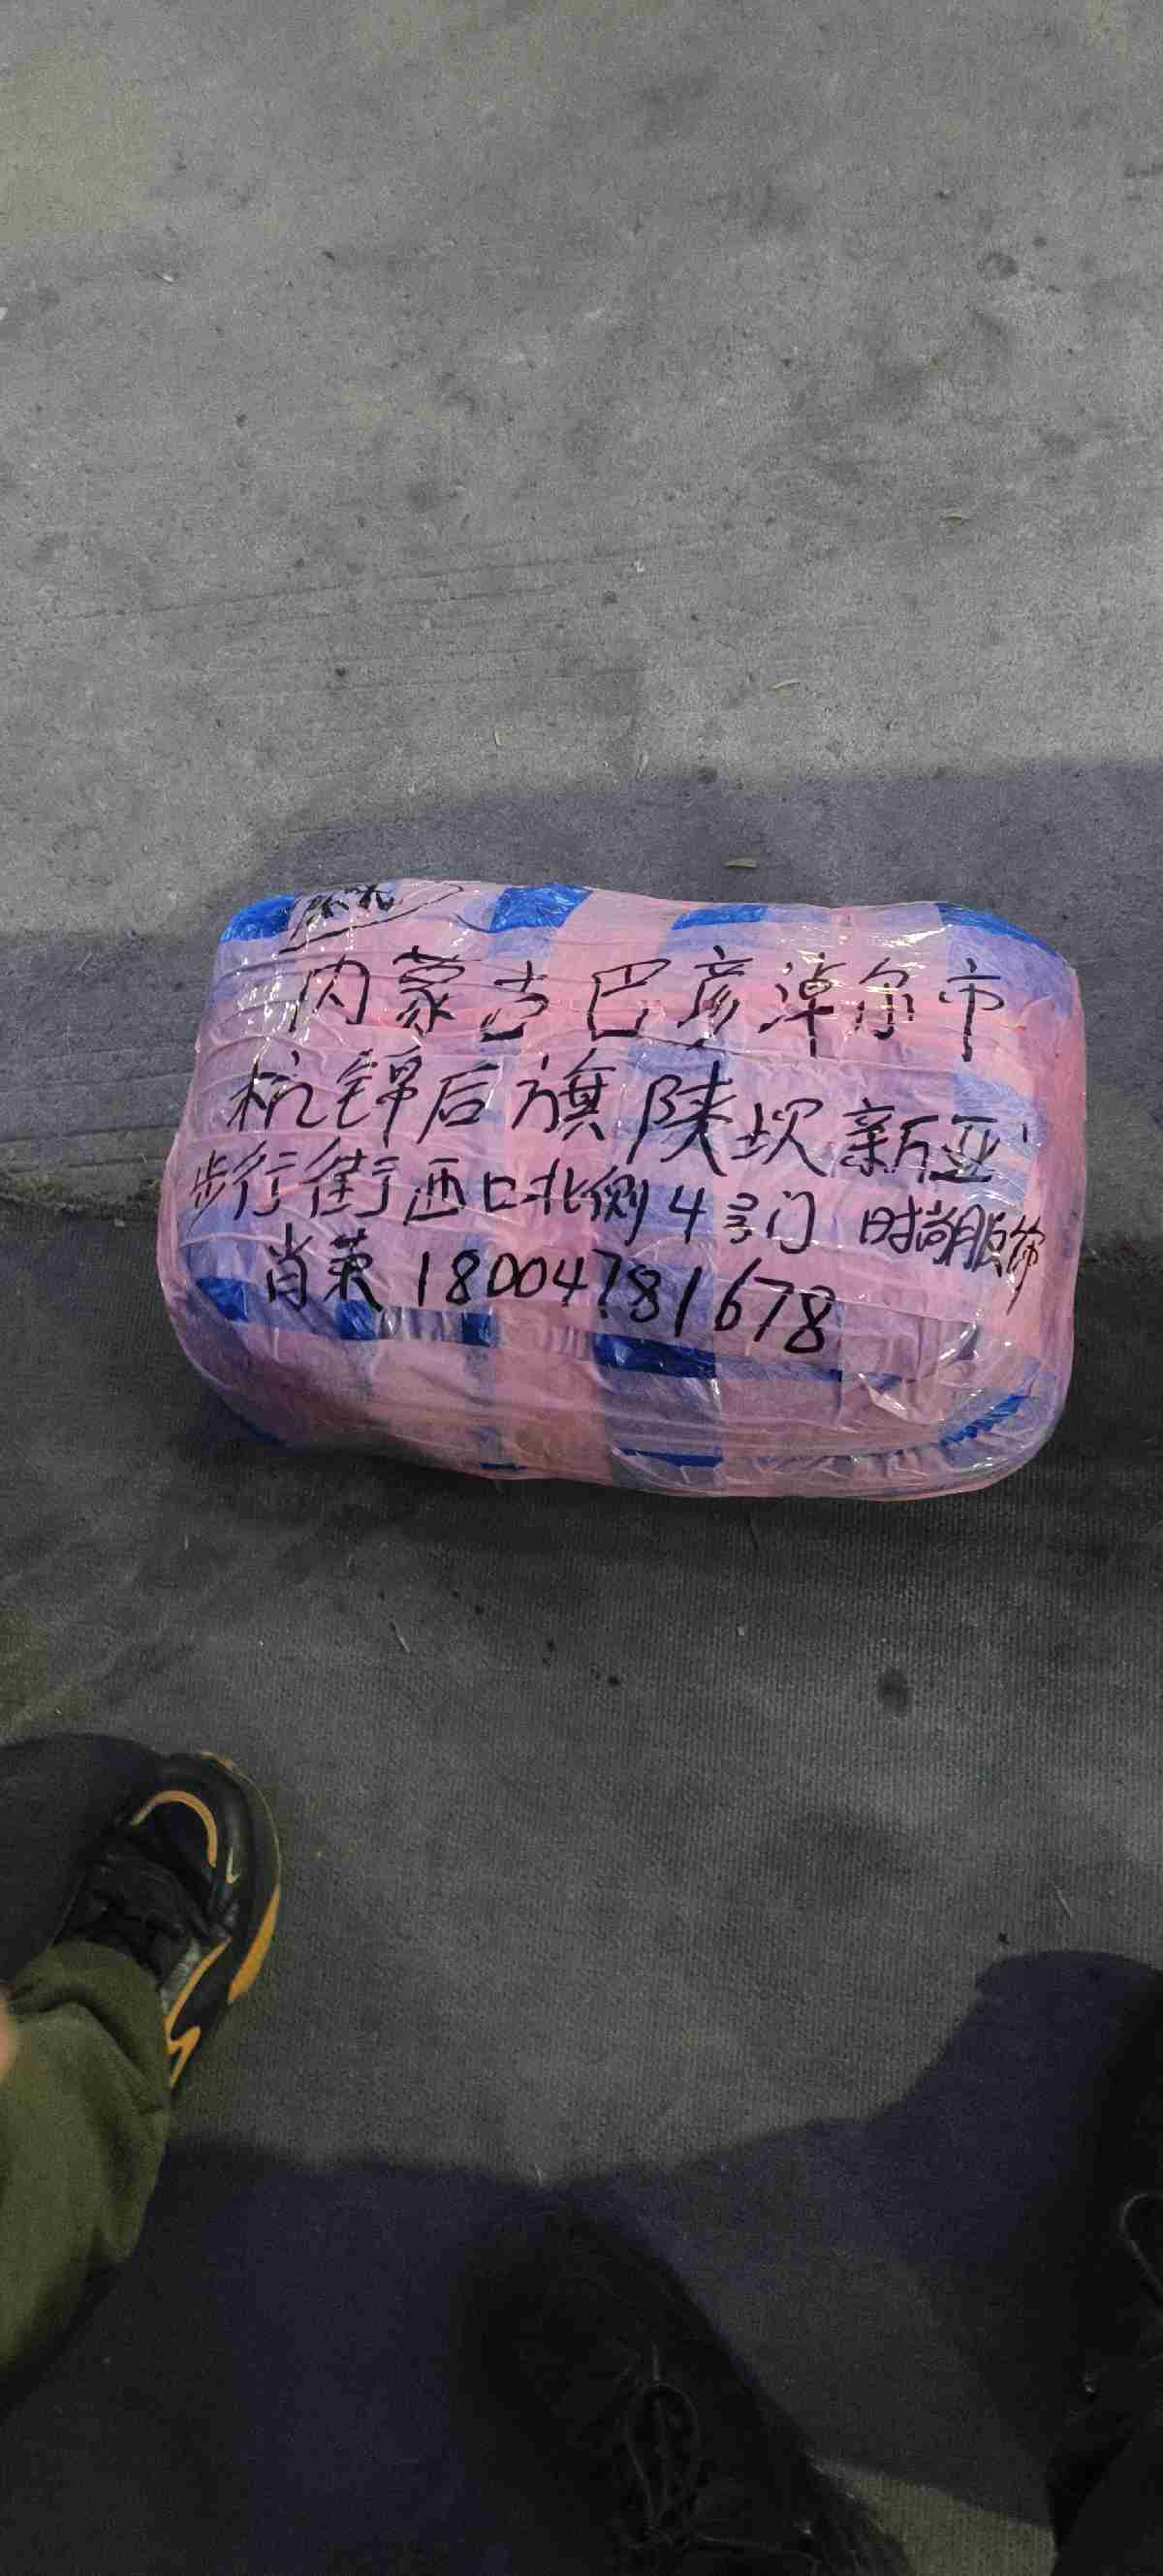 内蒙古巴彦淖尔市
杭锦后旗陕坝新亚
步行街西口北侧4号门 时尚服饰
肖荣 18004781678